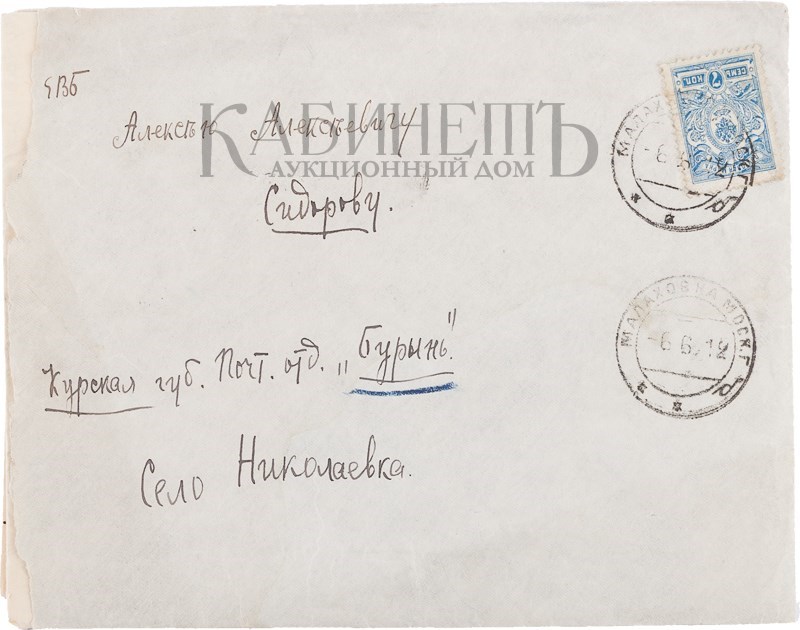 ЕВБ
Алексѣю Алексѣевичу
КАБИНЕТЪ
АУКЦИОННЫЙ ДОМ
Сидорову.
Курская губ. Почт. отд. „Бурынь".
Село Николаевка.
СЕМЬ 7 КОП.
МАЛАХОВКА МОСК. Г.
-6.6.12
МАЛАХОВКА МОСК. Г.
-6.6.12